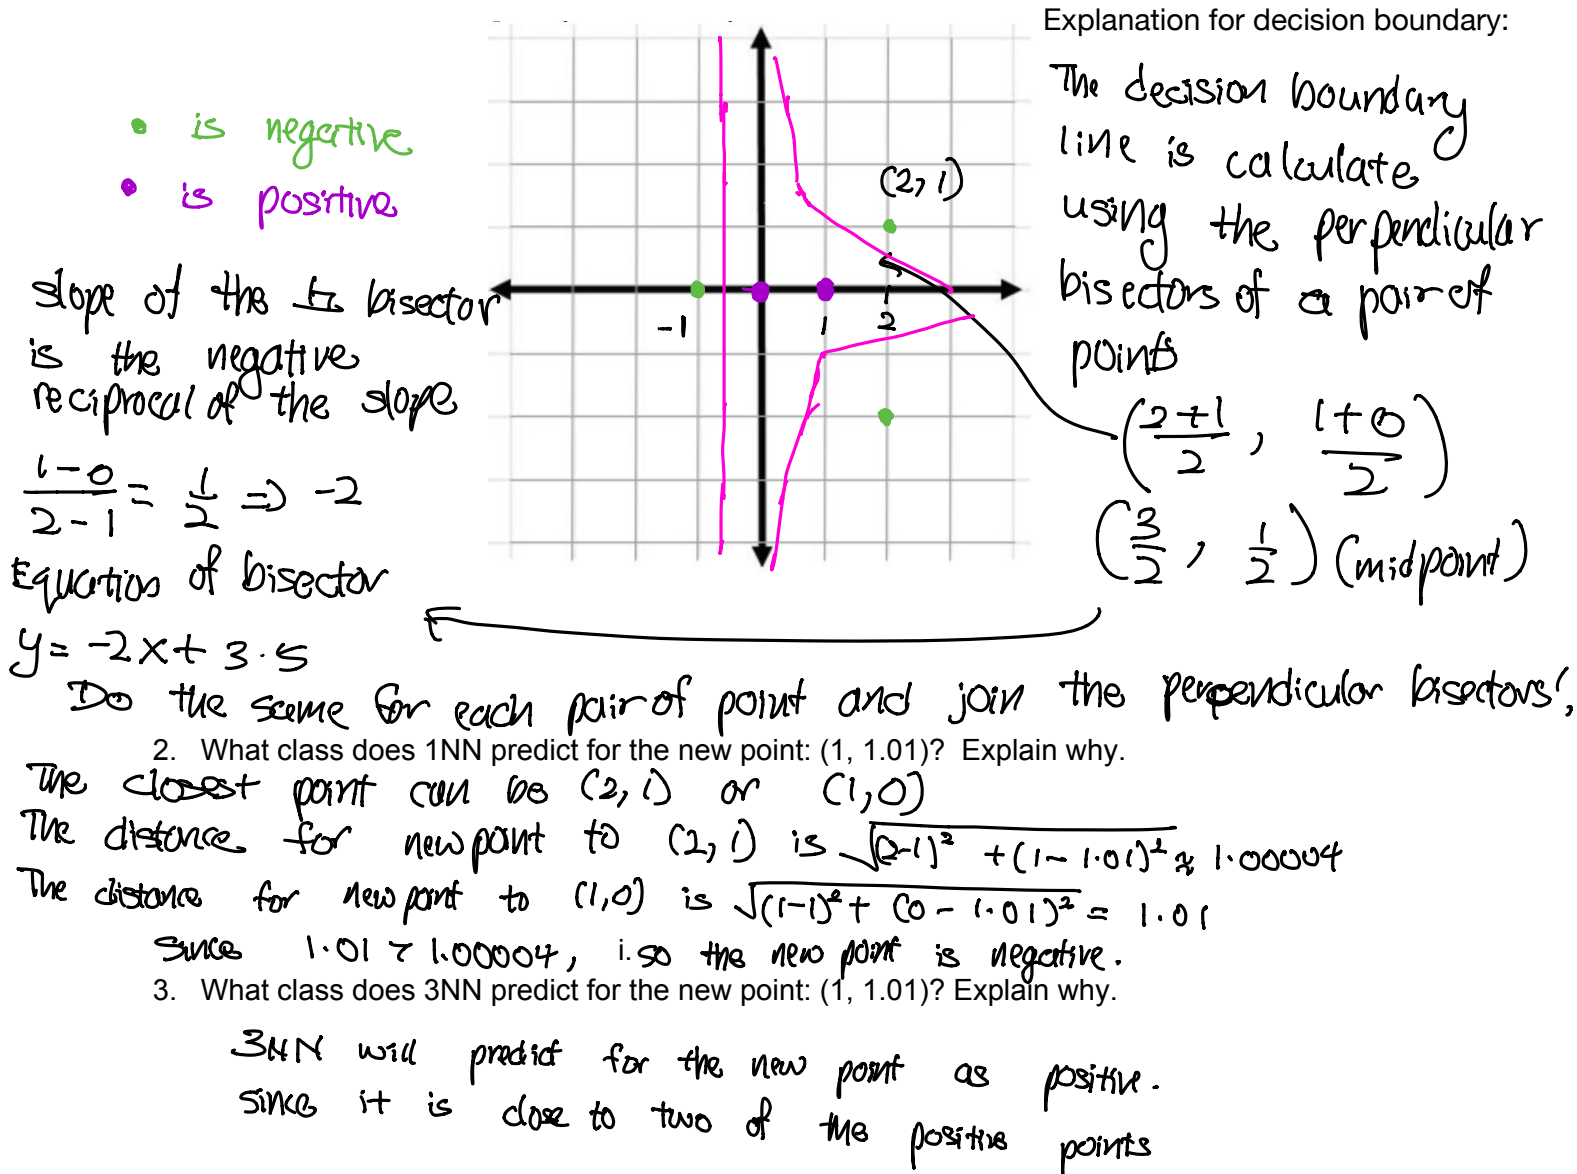 Explanation for decision boundary:
The decision boundary
line is calculate
using the perpendicular
bisectors of a pair of
points
(2+1/2, 1+0/2)
(3/2, 1/2) (midpoint)
• is negative
• is positive
(2, 1)
-1 1 2
slope of the ⊥ bisector
is the negative
reciprocal of the slope
1-0/2-1 = 1/2 => -2
Equation of bisector
y = -2x + 3.5
Do the same for each pair of point and join the perpendicular bisectors!
2. What class does 1NN predict for the new point: (1, 1.01)? Explain why.
The closest point can be (2, 1) or (1, 0)
The distance for new point to (2, 1) is √(2-1)² + (1 - 1.01)² ≈ 1.00004
The distance for new point to (1, 0) is √(1-1)² + (0 - 1.01)² = 1.01
since 1.01 > 1.00004, i. so the new point is negative.
3. What class does 3NN predict for the new point: (1, 1.01)? Explain why.
3NN will predict for the new point as positive.
since it is close to two of the positive points